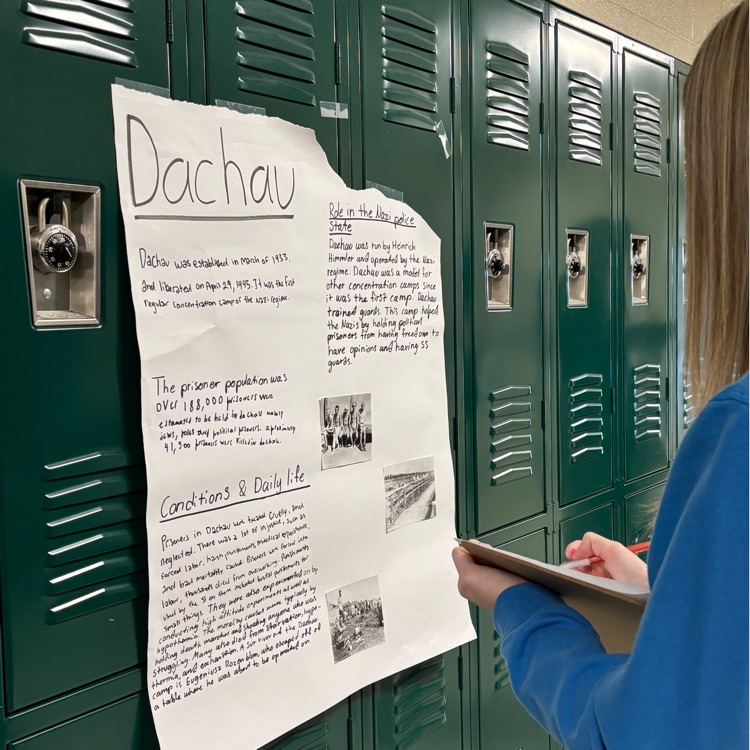 Dachau
Dachau was established in March of 1933,
and liberated on April 29, 1945. It was the first
regular concentration camp of the Nazi regime.
The prisoner population was
over 188,000 prisoners were
estimated to be held in dachau mainly
Jews, and political prisoners.
41,500 prisoners were killed in dachau.
Conditions & Daily life
Prisoners in Dachau were treated cruelly, and
neglected. There was a lot of injustice, such as
forced labor, harsh punishments, medical experiments,
and bad mortality causes. Prisoners were forced into
labor, thousands died from overworking. Punishments
used by the SS on them included brutal punishments for
small things. They were also experimented on by
conducting high altitude experiments as well as
hypothermia. The mortality causes were typically by
holding death marches and shooting anyone who was
struggling. Many also died from starvation, hypo-
thermia, and exhaustion. A survivor of the Dachau
camp is Eugeniusz who escaped off of
a table where he was about to be operated on.
Role in the Nazi police
State
Dachau was run by Heinrich
Himmler and operated by the Nazi
regime. Dachau was a model for
other concentration camps since
it was the first camp. Dachau
trained guards. This camp helped
the Nazis by holding political
prisoners from having freedom to
have opinions and having SS
guards.